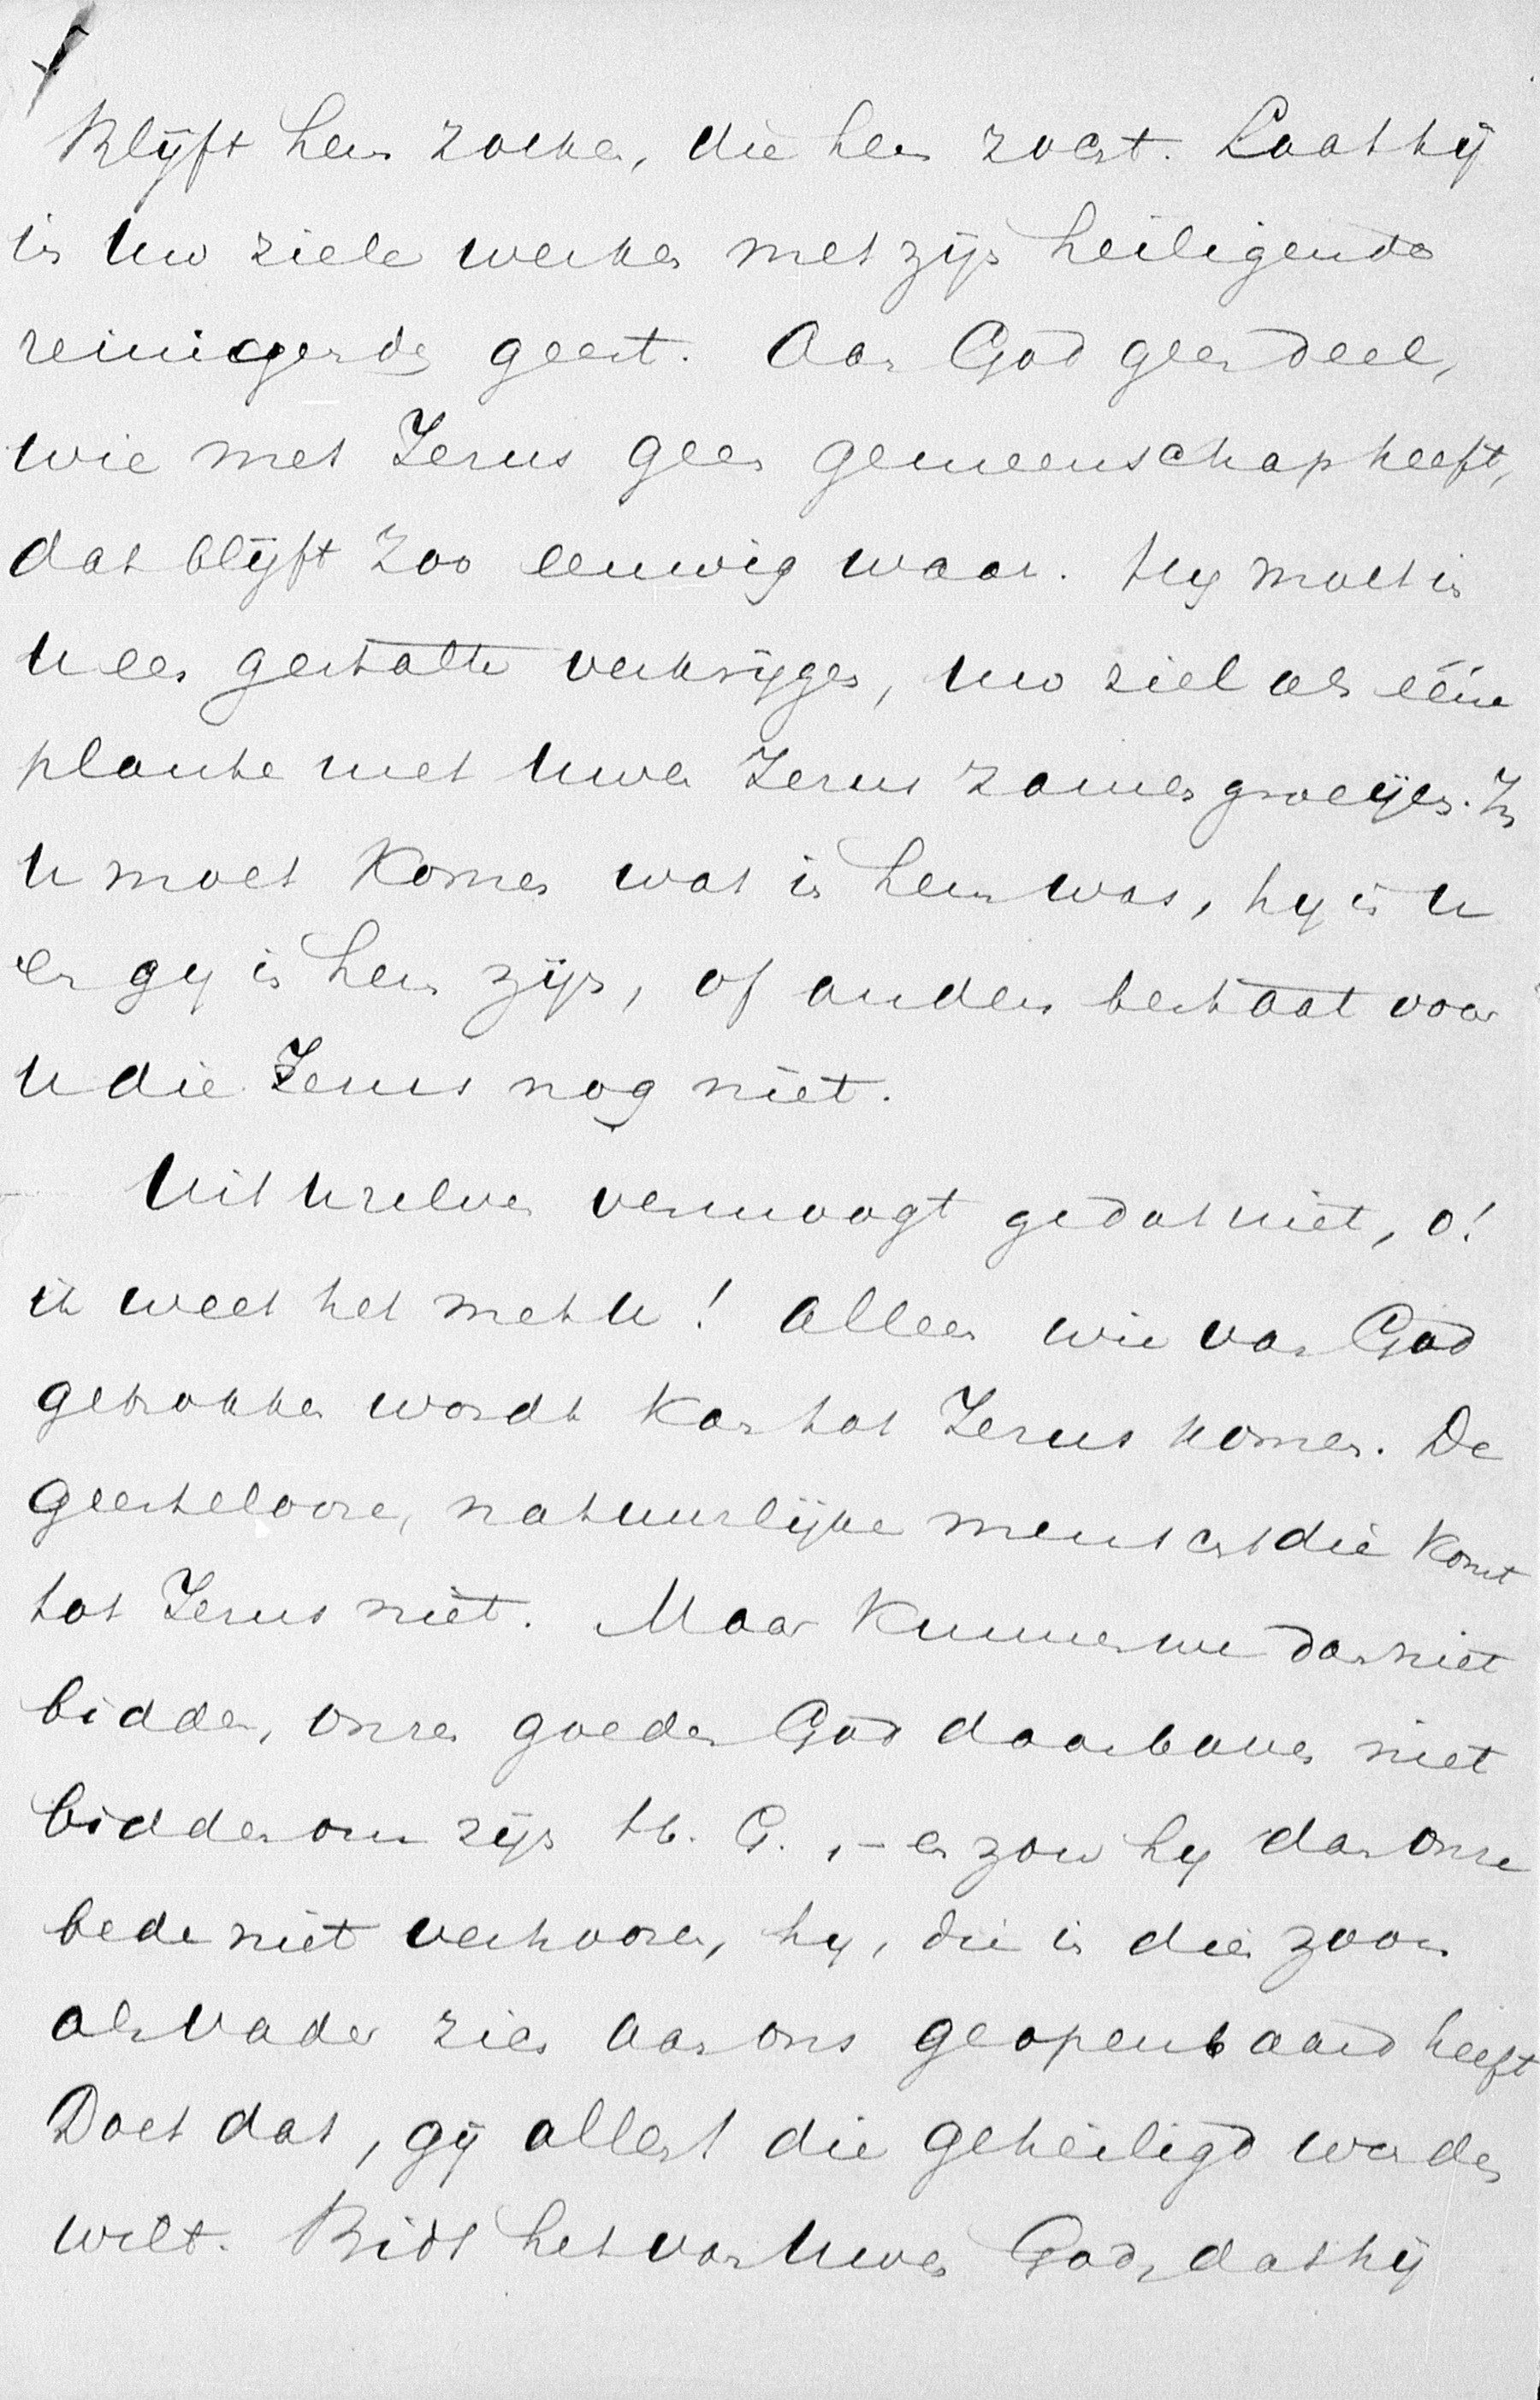 Blijft hem zoeken, die hem zoekt. Laat hij
in Uw ziele werken met zijn heiligende
reinigende geest. Aan God geen deel,
wie met Jezus geen gemeenschap heeft,
dat blijft zoo eeuwig waar. Hy moet in
U een gestalte verkrijgen, uw ziel als ééne
plante met Uwen Jezus zamengroeijen. In
U moet komen wat in hem was, hy in U
en gy in hem zijn, of anders bestaat voor
U die Jezus nog niet.
Uit Uzelven vermoogt ge dat niet, o!
ik weet het met U! Alleen wie van God
getrokken wordt kan tot Jezus komen. De
geestelooze, natuurlijke mensch die komt
tot Jezus niet. Maar kunnen we dan niet
bidden, onzen goeden God daarboven niet
bidden om zijn H. G., – en zou hy dan onze
bede niet verhooren, hy, die in dien zoon
als Vader zich aan ons geopenbaard heeft
Doet dat, gij allen die geheiligd worden
wilt. Bidt het van Uwen God, dat hij